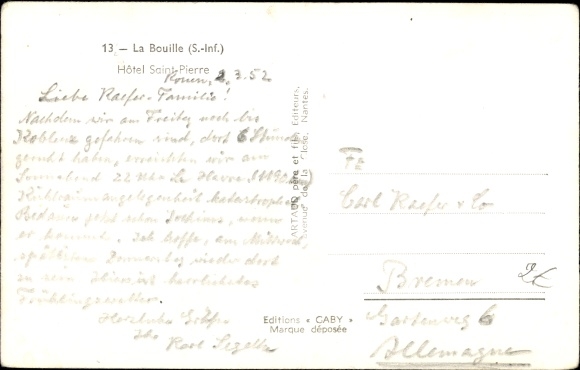 13 — La Bouille (S.-Inf.)
Hôtel Saint-Pierre
Rouen, 2.3.52
Liebe Raefer-Familie!
Nachdem wir am Freitag noch bis
Koblenz gefahren sind, dort 6 Stund
geruht haben, erreichten wir am
Sonnabend 22 Uhr Le Havre
Kühlraumangelegenheit katastrophal
Bedaure jetzt schon Jochims, wenn
er kommt. Ich hoffe, am Mittwoch,
spätestens Donnerstag wieder dort
zu sein. Hier ist herrliches
Frühlingswetter.
Herzliche Grüße
Ihr
Karl
ARTAUD père et fils, Editeurs,
avenue de la Close, Nantes.
Editions « CABY »
Marque déposée
Fa
Carl Raefer & Co
Bremen
2€
Allemagne